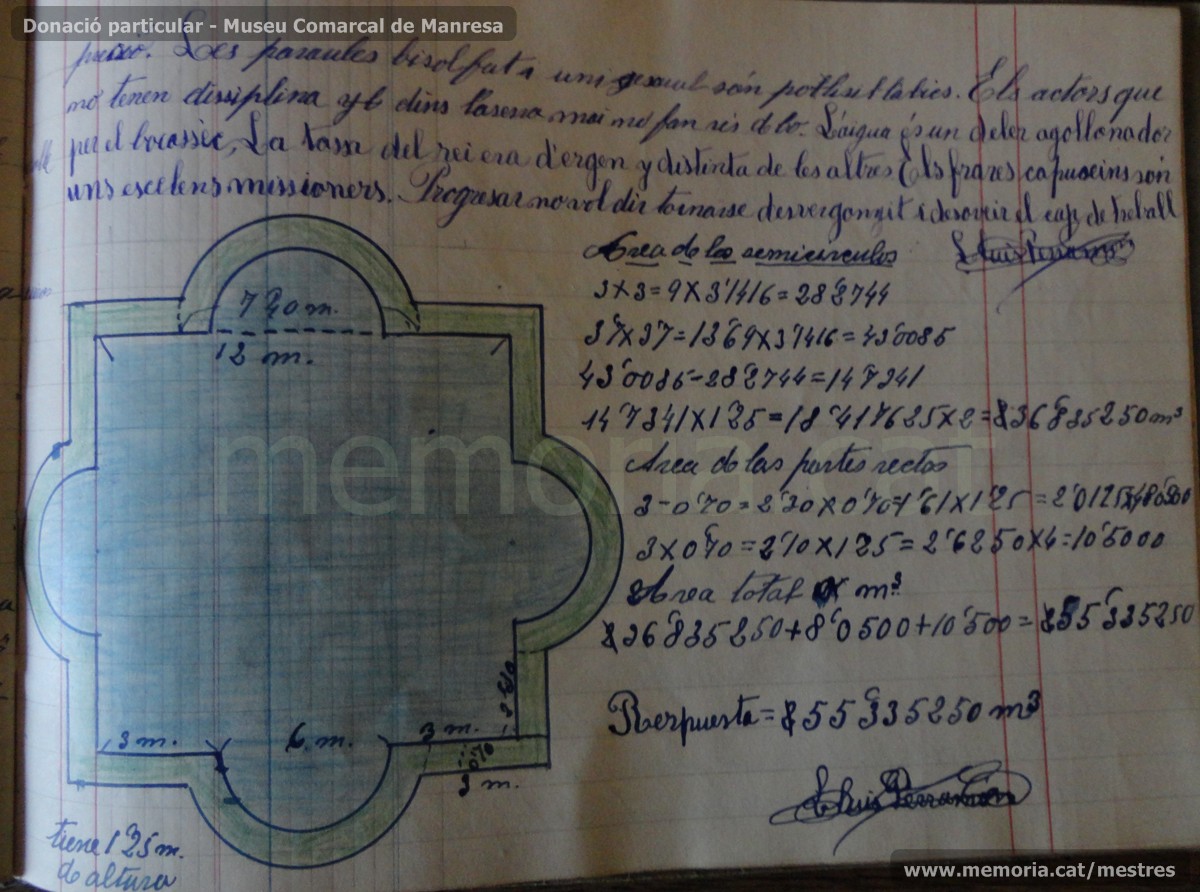 Donació particular - Museu Comarcal de Manresa
Les paraules bisolfat i uni sexual són
no tenen dissiplina y dins l'assena mai no fan res de bo. L'aigua és un deler agollonador
per el bocassèc, La tassa del rei era d'ergen y distinta de les altres Els frares capuseins són
uns escelens missioners. Progresar no vol dir tornarse desvergonyit i desoveir el cap de treball
Area de los semicirculos
3 x 3 = 9 x 3'1416 = 28'2744
3'7 x 3'7 = 13'69 x 3'1416 = 43'0085
43'0085 - 28'2744 = 14'7341
14'7341 x 1'25 = 18'417625 x 2 = 36'835250 m³
Area de las partes rectas
3 - 0'70 = 2'30 x 0'70 = 1'61 x 1'25 = 2'0125
3 x 0'70 = 2'10 x 1'25 = 2'6250 x 4 = 10'5000
Area total m³
36'835250 + 8'0500 + 10'500 = 55'335250
Respuesta = 55'335250 m³
7'40 m.
12 m.
3 m.
6 m.
3 m.
0'70
3 m.
tiene 1'25 m.
de altura
memoria.cat
www.memoria.cat/mestres